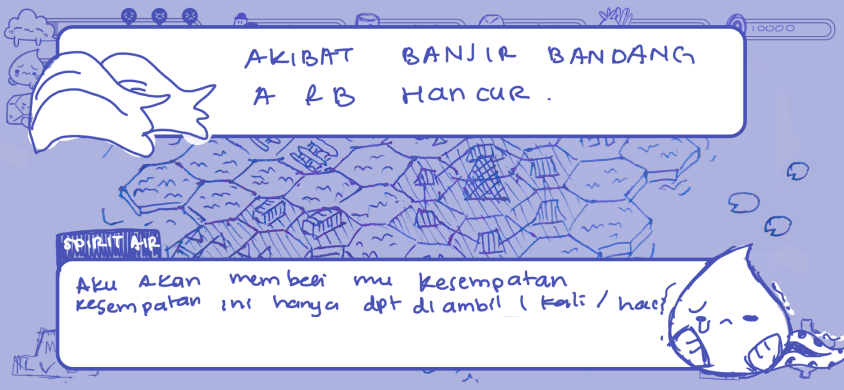 10000
AKIBAT BANJIR BANDANG
A RB HanCUR.
SPIRIT AIR
AKU AKan memberi mu kesempatan
kesempatan ini hanya dpt diambil 1 kali / hari